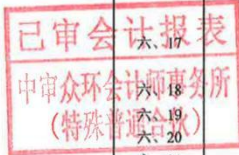 已审会计报表
六、17
中审众环会计师事务所
六、18
(特殊普通合伙)
六、19
六、20